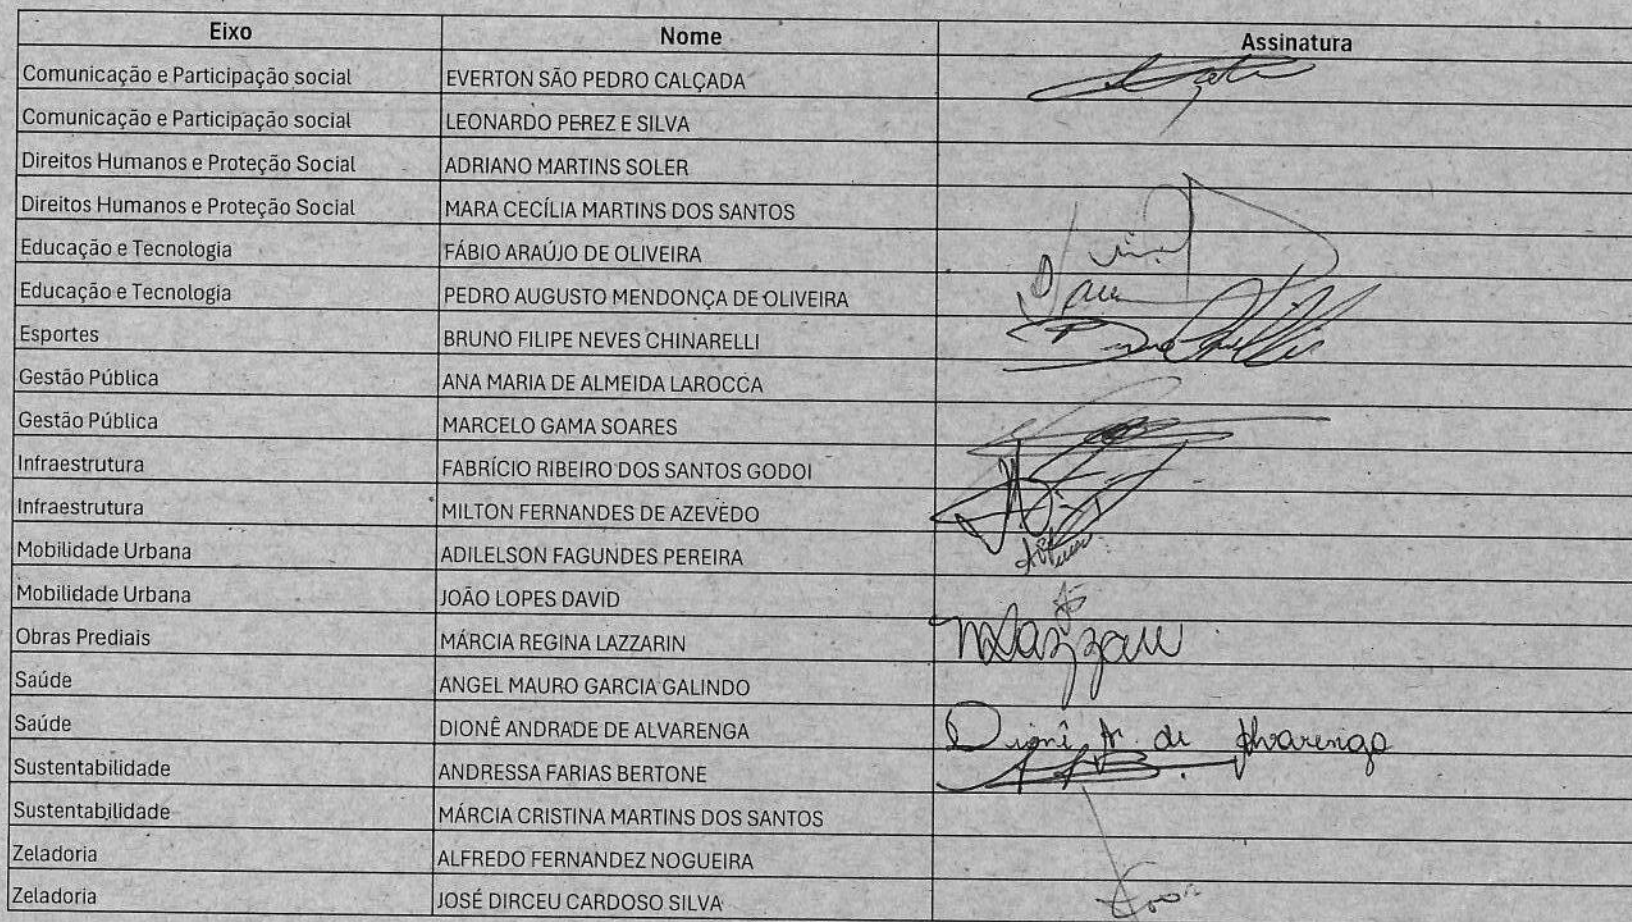 Eixo Nome Assinatura
Comunicação e Participação social EVERTON SÃO PEDRO CALÇADA
Comunicação e Participação social LEONARDO PEREZ E SILVA
Direitos Humanos e Proteção Social ADRIANO MARTINS SOLER
Direitos Humanos e Proteção Social MARA CECÍLIA MARTINS DOS SANTOS
Educação e Tecnologia FÁBIO ARAÚJO DE OLIVEIRA
Educação e Tecnologia PEDRO AUGUSTO MENDONÇA DE OLIVEIRA
Esportes BRUNO FILIPE NEVES CHINARELLI
Gestão Pública ANA MARIA DE ALMEIDA LAROCCA
Gestão Pública MARCELO GAMA SOARES
Infraestrutura FABRÍCIO RIBEIRO DOS SANTOS GODOI
Infraestrutura MILTON FERNANDES DE AZEVEDO
Mobilidade Urbana ADILELSON FAGUNDES PEREIRA
Mobilidade Urbana JOÃO LOPES DAVID
Obras Prediais MÁRCIA REGINA LAZZARIN
Saúde ANGEL MAURO GARCIA GALINDO
Saúde DIONÊ ANDRADE DE ALVARENGA Dionê A. de Alvarenga
Sustentabilidade ANDRESSA FARIAS BERTONE
Sustentabilidade MÁRCIA CRISTINA MARTINS DOS SANTOS
Zeladoria ALFREDO FERNANDEZ NOGUEIRA
Zeladoria JOSÉ DIRCEU CARDOSO SILVA